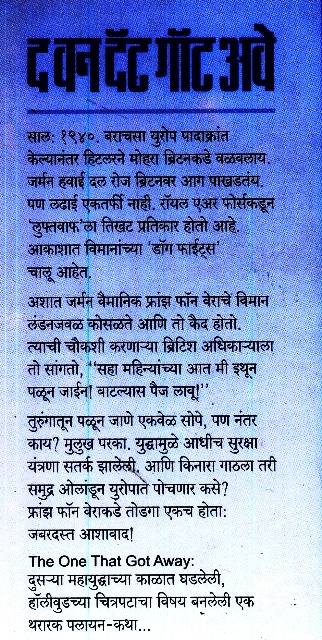 द वन दॅट गॉट अवे
साल: १९४०. बराचसा युरोप पादाक्रांत
केल्यानंतर हिटलरने मोहरा ब्रिटनकडे वळवलाय.
जर्मन हवाई दल रोज ब्रिटनवर आग पाखडतंय.
पण लढाई एकतर्फी नाही. रॉयल एअर फोर्सकडून
'लुफ्तवाफ'ला तिखट प्रतिकार होतो आहे.
आकाशात विमानांच्या 'डॉग फाईट्स'
चालू आहेत.
अशात जर्मन वैमानिक फ्रांझ फॉन वेराचे विमान
लंडनजवळ कोसळते आणि तो कैद होतो.
त्याची चौकशी करणाऱ्या ब्रिटिश अधिकाऱ्याला
तो सांगतो, “सहा महिन्यांच्या आत मी इथून
पळून जाईन! वाटल्यास पैज लावू!”
तुरुंगातून पळून जाणे एकवेळ सोपे, पण नंतर
काय? मुलुख परका. युद्धामुळे आधीच सुरक्षा
यंत्रणा सतर्क झालेली. आणि किनारा गाठला तरी
समुद्र ओलांडून युरोपात पोचणार कसे?
फ्रांझ फॉन वेराकडे तोडगा एकच होता:
जबरदस्त आशावाद!
The One That Got Away:
दुसऱ्या महायुद्धाच्या काळात घडलेली,
हॉलीवुडच्या चित्रपटाचा विषय बनलेली एक
थरारक पलायन-कथा...